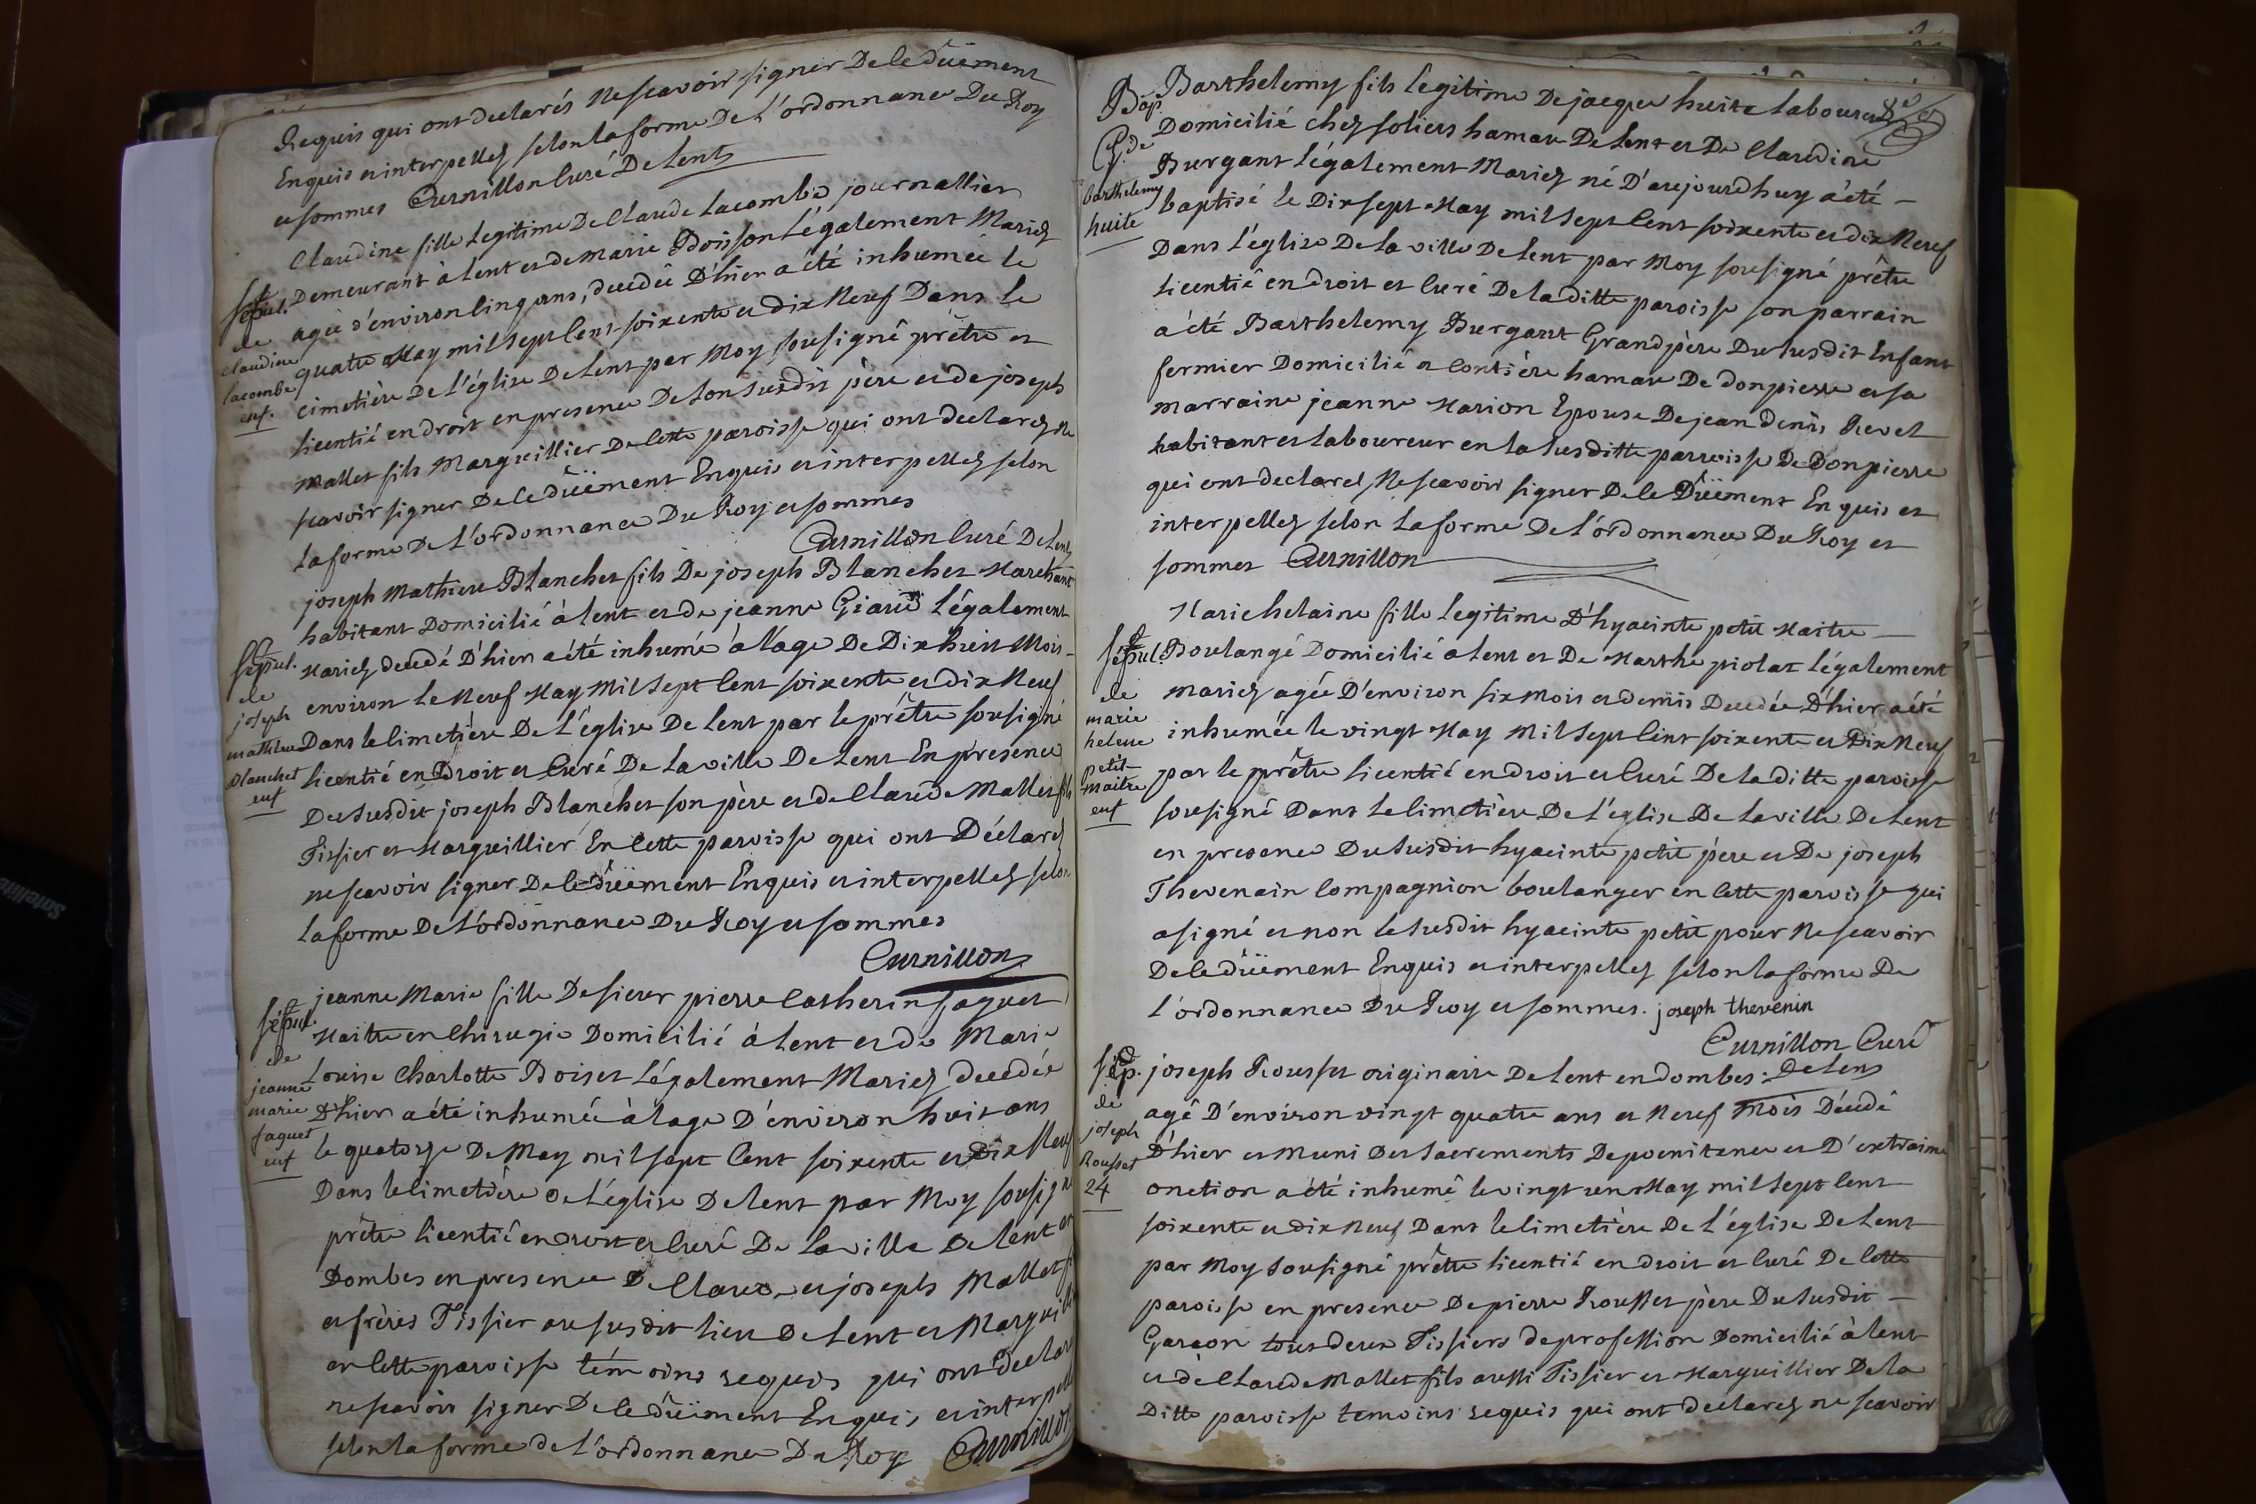 Requis qui ont declarés ne scavoir signer De ce düement
Enquis et interpellez selon la forme De L'ordonnance Du Roy
et sommes Curnillon Curé De Lent
Claudine fille Legitime De Claude Lacombe journallier
Demeurant à Lent et de marie Boisson Légalement Mariez
agée d'environ Cinq ans, decedée D'hier a été inhumée le
quatre May mil sept Cent soixente et dix Neuf Dans le
Cimetière De L'église De Lent par Moy sousigné prêtre et
Licentié en droit en presence De son susdit père et de joseph
Mallet fils Marguillier De Cette paroisse qui ont declarez ne
scavoir signer De ce düëment Enquis et interpellez selon
la forme De L'ordonnance Du Roy et sommes
Curnillon Curé De Lent
Sépul.
de
Claudine
lacombe
enf.
joseph Mathieu Blanchet fils De joseph Blanchet Marchant
habitant Domicilié à Lent et de jeanne Giarië Légalement
Mariez decedé D'hier a été inhumé à l'age De Dix huit Mois
environ le Neuf May Mil sept Cent soixente et dix Neuf
Dans le Cimetière De L'église De Lent par le prêtre sousigné
Licentié en Droit et Curé De la ville De Lent En presence
Du susdit joseph Blanchet son père et de Claude Mallet fils
Tissier et Marguillier En Cette paroisse qui ont Déclarez
ne scavoir signer De ce düëment Enquis et interpellez selon
la forme De L'ordonnance Du Roy et sommes
Curnillon
Sépul.
de
joseph
mathieu
blanchet
enf
jeanne Marie fille De sieur pierre Catherin faguet
Maitre en Chirugie Domicilié à Lent et de Marie
Louise Charlotte Boiset Légalement Mariez decedée
D'hier a été inhumée à lage D'environ huit ans
le quatorze De May mil sept Cent soixente et Dix Neuf
Dans le Cimetière De L'église De Lent par Moy sousigné
prêtre Licentié en Droit et Curé De La ville De Lent en
Dombes en presence De Claude et joseph Mallet
et frères Tissier au susdit lieu De Lent et Marguill
en Cette paroisse témoins requis qui ont declar
ne scavoir signer De ce düëment Enquis et interpell
selon la forme de L'ordonnance Du Roy Curnillon
Sépul.
de
jeanne
marie
faguet
enf
Barthelemy fils Legitime De jacque huite laboureur
Domicilié chez soliers hamau De Lent et De Claudine
Burgant Légalement Mariez né D'aujourdhuy a été
baptisé le Dix sept May mil sept Cent soixente et dix Neuf
Dans L'église De la ville De Lent par Moy sousigné prêtre
Licentié en droit et Curé De la ditte paroisse son parrain
a été Barthelemy Burgant Grand père Du susdit Enfant
fermier Domicilié a Contière hamau De donpierre et sa
marraine jeanne Marion Epouse De jean denis Revel
habitant et laboureur en la susditte parroisse De Donpierre
qui ont declarez Ne scavoir signer De Ce Düëment Enquis et
interpellez selon la forme De L'ordonnance Du Roy et
sommes Curnillon
Bap.
de
barthelemy
huite
Marie helaine fille Legitime D'hyacinte petit Maitre
Boulangé Domicilié a Lent et De Marthe piolat Légalement
mariez agée D'environ six Mois et demis Decedée D'hier a été
inhumée le vingt May Mil sept Cent soixente et Dix Neuf
par le prêtre Licentié en droit et Curé De la ditte paroisse
sousigné Dans le Cimetière De L'église De la ville De Lent
en presence Du susdit hyacinte petit père et De joseph
Thevenain Compagnion boulanger en Cette paroisse qui
a signé et non le susdit hyacinte petit pour Ne scavoir
De ce düëment Enquis et interpellez selon la forme De
L'ordonnance Du Roy et sommes. joseph thevenin
Curnillon Curé
De Lent
Sépul.
de
marie
helene
petit
maitre
enf
joseph Rousset originaire De Lent en dombes
agé D'environ vingt quatre ans et Neuf Mois Décedé
D'hier et Muni Des sacrements De poenitence et D'extraime
onction a été inhumé le vingt un May mil sept Cent
soixente et dix Neuf Dans le Cimetière De L'église De Lent
par Moy sousigné prêtre Licentié en droit et Curé De Cette
paroisse en presence De pierre Rousset père Du susdit
Garçon tous deux Tissiers de profession Domicilié à Lent
et de Claude Mallet fils aussi Tissier et Marguillier De la
Ditte paroisse temoins requis qui ont declarez ne scavoir
Sép.
de
joseph
Rousset
24